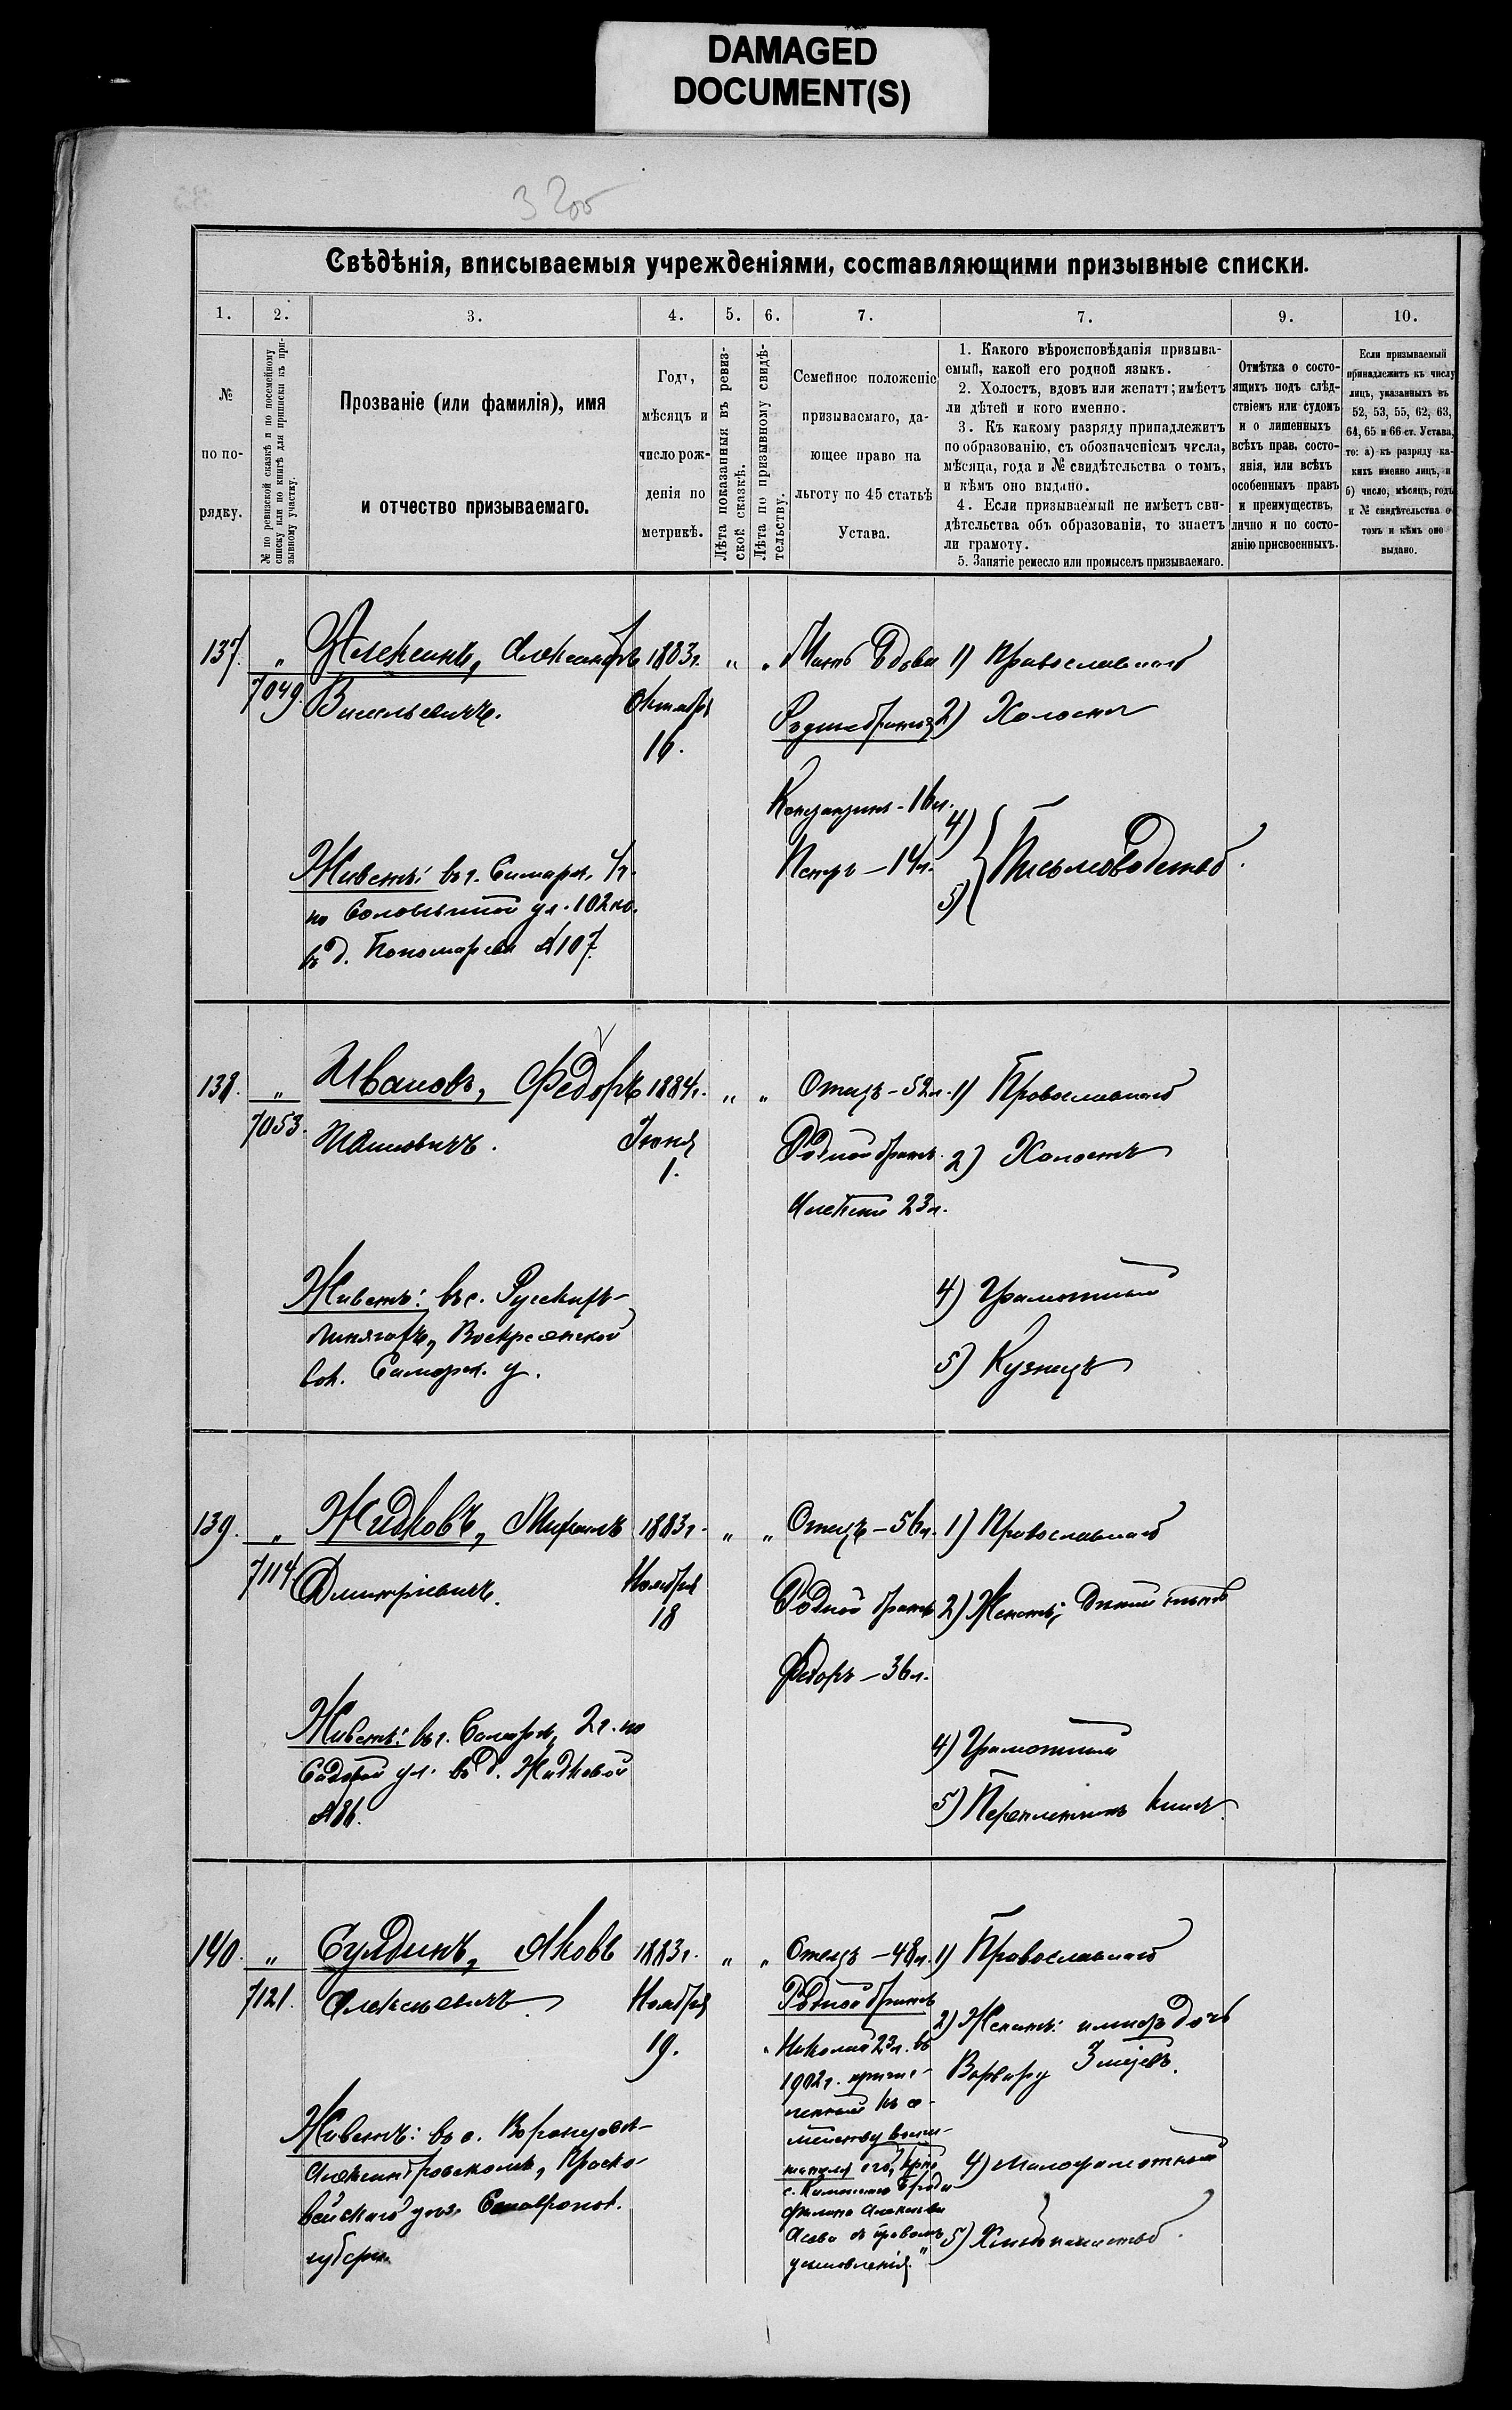 DAMAGED
DOCUMENT(S)
Свѣдѣнія, вписываемыя учрежденіями, составляющими призывные списки.
1.
2.
3.
4.
5.
6.
7.
7.
9.
10.
№
по по-
рядку.
№ по ревизской сказкѣ и по посемейному
списку или по книгѣ для приписки къ при-
зывному участку.
Прозваніе (или фамилія), имя
и отчество призываемаго.
Годъ,
мѣсяцъ и
число рож-
денія по
метрикѣ.
Лѣта показанныя въ ревиз-
ской сказкѣ.
Лѣта по призывному свидѣ-
тельству.
Семейное положеніе
призываемаго, да-
ющее право на
льготу по 45 статьѣ
Устава.
1. Какого вѣроисповѣданія призыва-
емый, какой его родной языкъ.
2. Холостъ, вдовъ или женатъ; имѣетъ
ли дѣтей и кого именно.
3. Къ какому разряду принадлежитъ
по образованію, съ обозначеніемъ числа,
мѣсяца, года и № свидѣтельства о томъ,
и кѣмъ оно выдано.
4. Если призываемый не имѣетъ сви-
дѣтельства объ образованіи, то знаетъ
ли грамоту.
5. Занятіе ремесло или промыселъ призываемаго.
Отмѣтка о состо-
ящихъ подъ слѣд-
ствіемъ или судомъ
и о лишенныхъ
всѣхъ правъ, состо-
янія, или всѣхъ
особенныхъ правъ
и преимуществъ,
лично и по состо-
янію присвоенныхъ.
Если призываемый
принадлежитъ къ числу
лицъ, указанныхъ въ
52, 53, 55, 62, 63,
64, 65 и 66 ст. Устава,
то: а) къ разряду ка-
кихъ именно лицъ, и
б) число, мѣсяцъ, годъ
и № свидѣтельства о
томъ и кѣмъ оно
выдано.
137.
"
7049.
Александръ
Васильевичъ.
1883г.
Октября
16.
" "
Мать вдова
Родные братья
Константинъ - 16л.
Петръ - 14л.
1) Православнаго
2) Холостъ
4)
5)
Письмоводство.
Живетъ: въ г. Самарѣ, 4ч.
по Соловьиной ул.
въ д. Пономарева № 107.
138.
"
7053.
Ивановъ, Федоръ
Ивановичъ.
1884г.
Іюня
1.
" "
Отецъ - 52л.
Родной братъ
Алексѣй 23л.
1) Православнаго
2) Холостъ
4) Грамотный
5) Кузнецъ
Живетъ: въ с. Русскихъ-
Липягахъ, Воскресенской
вол. Самарск. у.
139.
"
7114.
Жидковъ, Михаилъ
Дмитріевичъ.
1883г.
Ноября
18
" "
Отецъ - 56л.
Родной братъ
Федоръ - 36л.
1) Православнаго
2) Женатъ;
4) Грамотный
5) Переплетчикъ книгъ.
Живетъ: въ г. Самарѣ, 2ч. по
Садовой ул. въ д. Жидковой
№ 86.
140.
"
7121.
Сулдинъ, Яковъ
Алексѣевичъ
1883г.
Ноября
19.
" "
Отецъ - 48л.
Родной братъ
Николай 23л. въ
1902г. причис-
ленный къ се-
мейству воспи-
тателя его,
усыновленія."
1) Православнаго
2) Женатъ: имѣетъ дочь
Варвару
4) Малограмотный
5) Хлѣбопашество.
Живетъ: въ с. Воронцовѣ-
Александровскомъ, Праско-
вейскаго уѣз. Ставропол.
губерн.